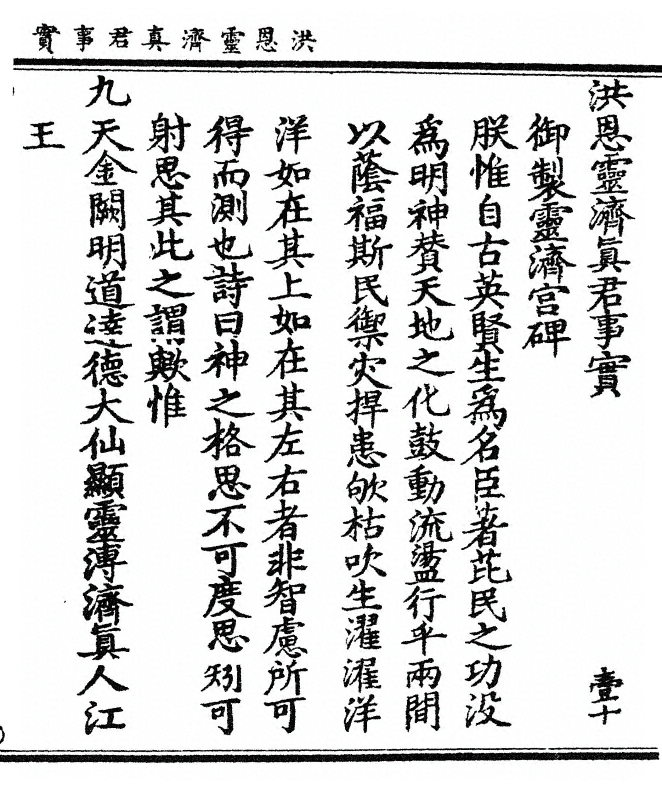 洪恩靈濟真君事實
洪恩靈濟眞君事實 壹十
御製靈濟宮碑
朕惟自古英賢生爲名臣著芘民之功没
爲明神贊天地之化鼓動流盪行乎兩間
以蔭福斯民禦灾捍患欨枯吹生濯濯洋
洋如在其上如在其左右者非智慮所可
得而測也詩曰神之格思不可度思矧可
射思其此之謂歟惟
九天金闕明道達德大仙顯靈溥濟眞人江
王